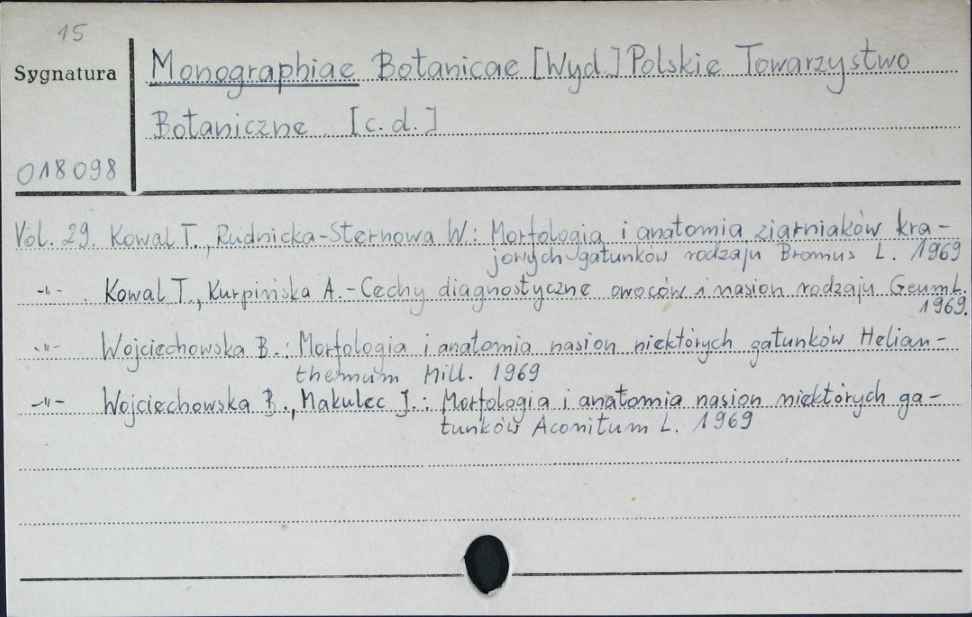 15
Sygnatura
Monographiae Botanicae [Wyd.] Polskie Towarzystwo
Botaniczne [c.d.]
018098
Vol. 29. Kowal T., Rudnicka-Sternowa W.: Morfologia i anatomia ziarniaków kra-
jowych gatunków rodzaju Bromus L. 1969
-"- . Kowal T., Kurpińska A.- Cechy diagnostyczne owoców i nasion rodzaju Geum L.
1969.
-"- Wojciechowska B.: Morfologia i anatomia nasion niektórych gatunków Helian-
themum Mill. 1969
-"- Wojciechowska B., Makulec J.: Morfologia i anatomia nasion niektórych ga-
tunków Aconitum L. 1969